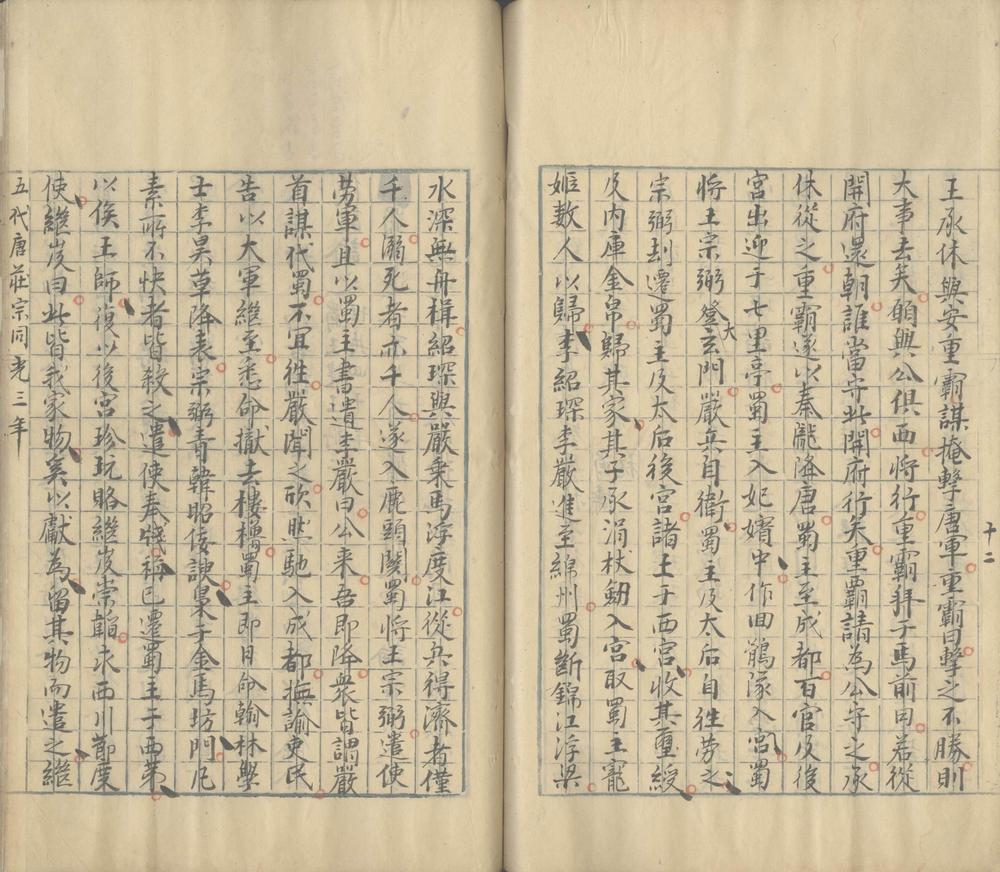 十二
王承休與安重霸謀掩擊唐軍重霸曰擊之不勝則
大事去矣願與公俱西將行重霸拜于馬前曰若從
開府還朝誰當守此開府行矣重霸請為公守之承
休從之重霸遂以秦隴降唐蜀主至成都百官及後
宮出迎于七里亭蜀主入妃嬪中作回鶻隊入宮蜀
將王宗弼登大玄門嚴兵自衛蜀主及太后自往勞之
宗弼刦遷蜀主及太后後宮諸王于西宮收其璽綬
及內庫金帛歸其家其子承涓杖劒入宮取蜀主寵
姬數人以歸李紹琛李嚴進至綿州蜀斷錦江浮梁
水深無舟楫紹琛與嚴乘馬浮度江從兵得濟者僅
千人溺死者亦千人遂入鹿頭關蜀將王宗弼遣使
勞軍且以蜀主書遺李嚴曰公来吾即降衆皆謂嚴
首謀代蜀不宜往嚴聞之欣然馳入成都撫諭吏民
告以大軍継至悉命撤去樓櫓蜀主即日命翰林學
士李昊草降表宗弼責韓昭佞諛梟于金馬坊門凡
素所不快者皆殺之遣使奉牋稱已遷蜀主于西第
以俟王師復以後宮珍玩賂継岌崇韜求西川節度
使継岌曰此皆我家物奚以獻為留其物而遣之継
五代唐莊宗同光三年